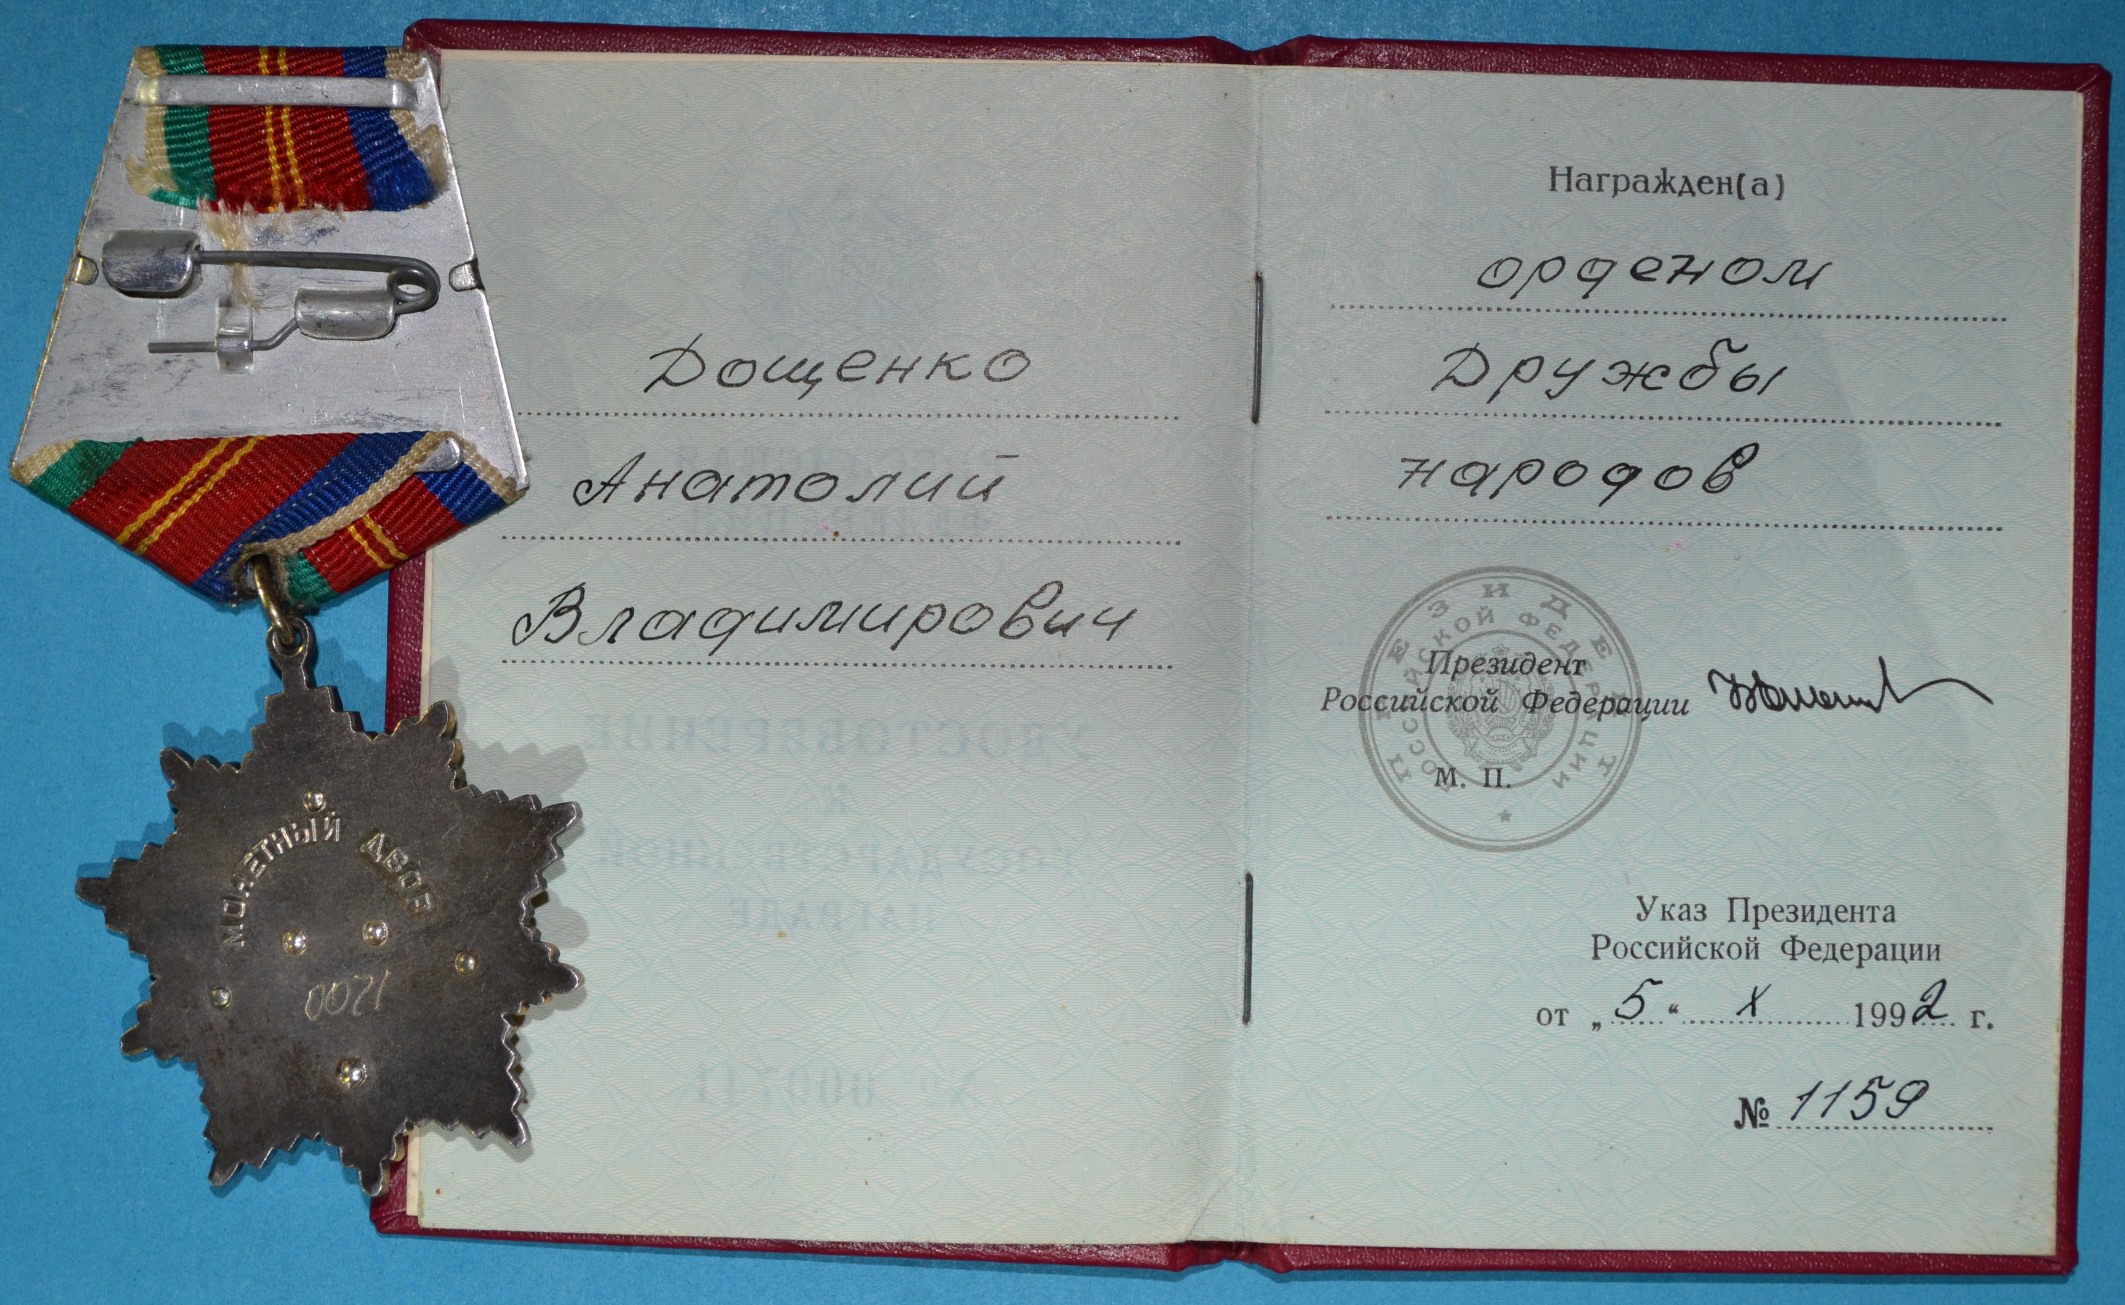 Дощенко
Анатолий
Владимирович
Награжден(а)
орденом
Дружбы
народов
ПРЕЗИДЕНТ
РОССИЙСКОЙ ФЕДЕРАЦИИ
Президент
Российской Федерации
М. П.
Указ Президента
Российской Федерации
от „5“ X 1992 г.
№ 1159
МОНЕТНЫЙ ДВОР
1200